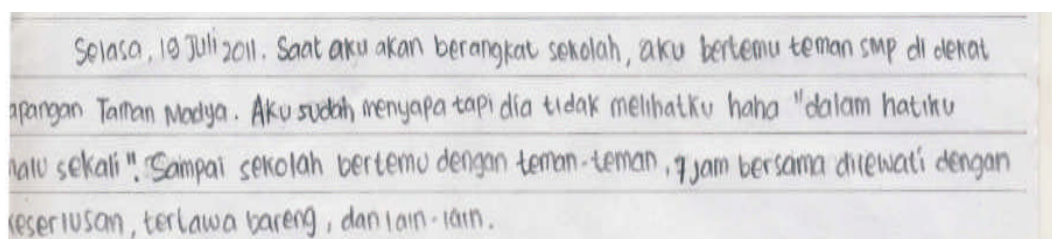 Selasa, 19 Juli 2011. Saat aku akan berangkat sekolah, aku bertemu teman smp di dekat
apangan Taman Madya. Aku sudah menyapa tapi dia tidak melihatku haha "dalam hatiku
malu sekali". Sampai sekolah bertemu dengan teman-teman, 7 jam bersama dilewati dengan
keseriusan, tertawa bareng, dan lain-lain.